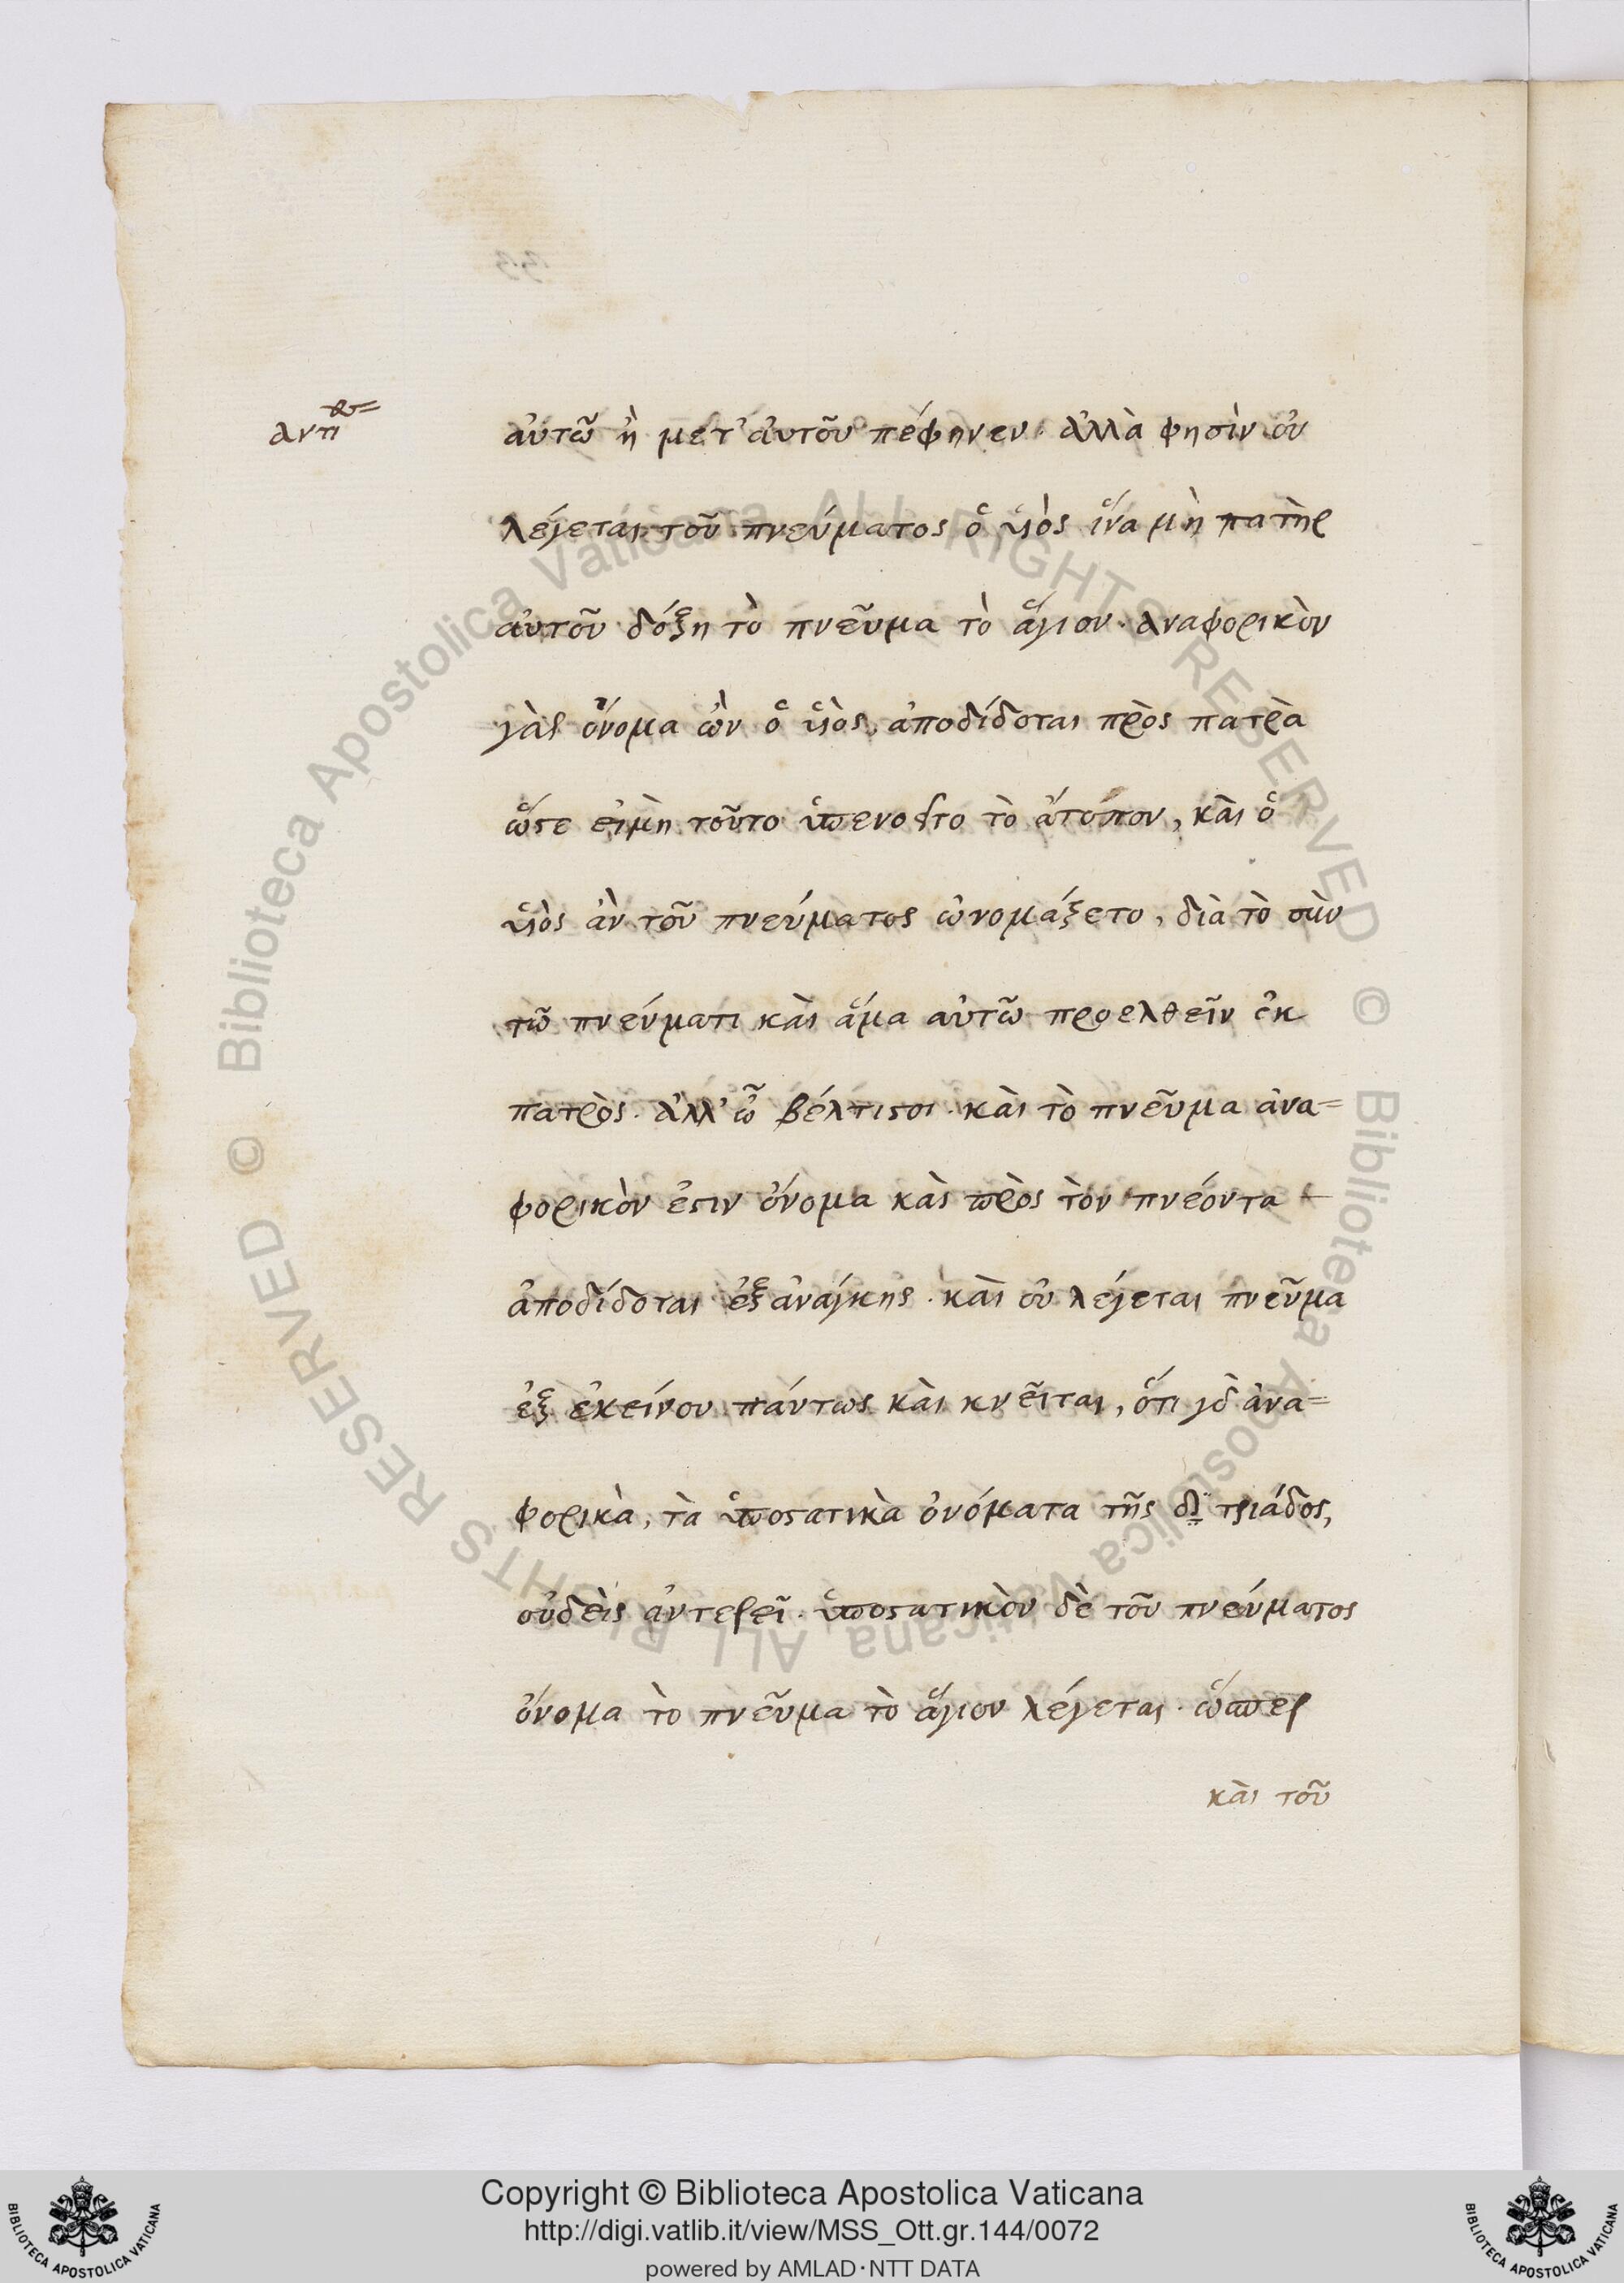 ἀντιθ
αὐτῶ ἢ μετ' αὐτοῦ πέφηνεν· ἀλλὰ φησὶν οὐ
λέγεται τοῦ πνεύματος ὁ ὑιὸς ἵνα μὴ πατὴρ
αὐτοῦ δόξη τὸ πνεῦμα τὸ ἅγιον. ἀναφορικὸν
γὰρ ὄνομα ὢν ὁ ὑιὸς, ἀποδίδοται πρὸς πατρὰ
ὥστε εἰμὴ τοῦτο ὑπενοεῖτο τὸ ἄτοπον, καὶ ὁ
ὑιὸς ἂν τοῦ πνεύματος ὠνομάζετο, διὰ τὸ σὺν
τῶ πνεύματι καὶ ἅμα αὐτῶ προελθεῖν ἐκ
πατρὸς. ἀλλ' ὦ βέλτιστοι. καὶ τὸ πνεῦμα ἀνα=
φορικὸν ἐστιν ὄνομα καὶ πρὸς τὸν πνέοντα
ἀποδίδοται ἐξ ἀνάγκης. καὶ οὐ λέγεται πνεῦμα
ἐξ ἐκείνου πάντως καὶ κνεῖται, ὅτι γὰρ ἀνα=
φορικὰ, τὰ ὑποστατικὰ ὀνόματα τῆς τριάδος,
οὐδεὶς ἀντερεῖ. ὑποστατικὸν δὲ τοῦ πνεύματος
ὄνομα τὸ πνεῦμα τὸ ἅγιον λέγεται. ὥσπερ
καὶ τοῦ
Copyright © Biblioteca Apostolica Vaticana
http://digi.vatlib.it/view/MSS_Ott.gr.144/0072
powered by AMLAD·NTT DATA